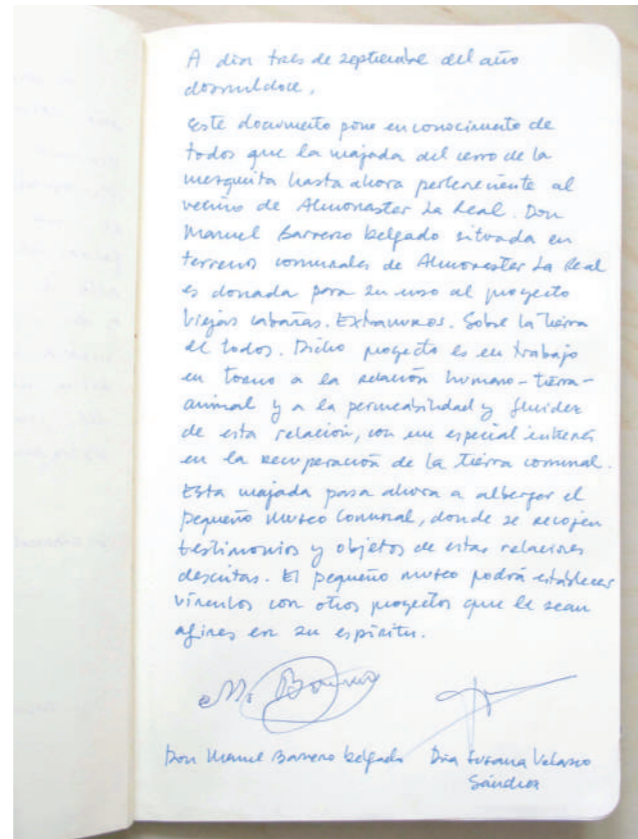 A día tres de septiembre del año
dosmildoce,
Este documento pone en conocimiento de
todos que la majada del cerro de la
mezquita hasta ahora perteneciente al
vecino de Almonaster La Real. Don
Manuel Barrero belgado situada en
terrenos comunales de Almonaster La Real
es donada para su uso al proyecto
Viejas cabañas. Extramuros. Sobre la tierra
de todos. Dicho proyecto es un trabajo
en torno a la relación humano-tierra-
animal y a la permeabilidad y fluidez
de esta relación, con un especial interés
en la recuperación de la tierra comunal.
Esta majada pasa ahora a albergar el
pequeño museo Comunal, donde se recojen
testimonios y objetos de estas relaciones
descritas. El pequeño museo podrá establecer
vínculos con otros proyectos que le sean
afines en su espíritu.
Don Manuel Barrero belgado Dña Susana Velasco
Sánchez